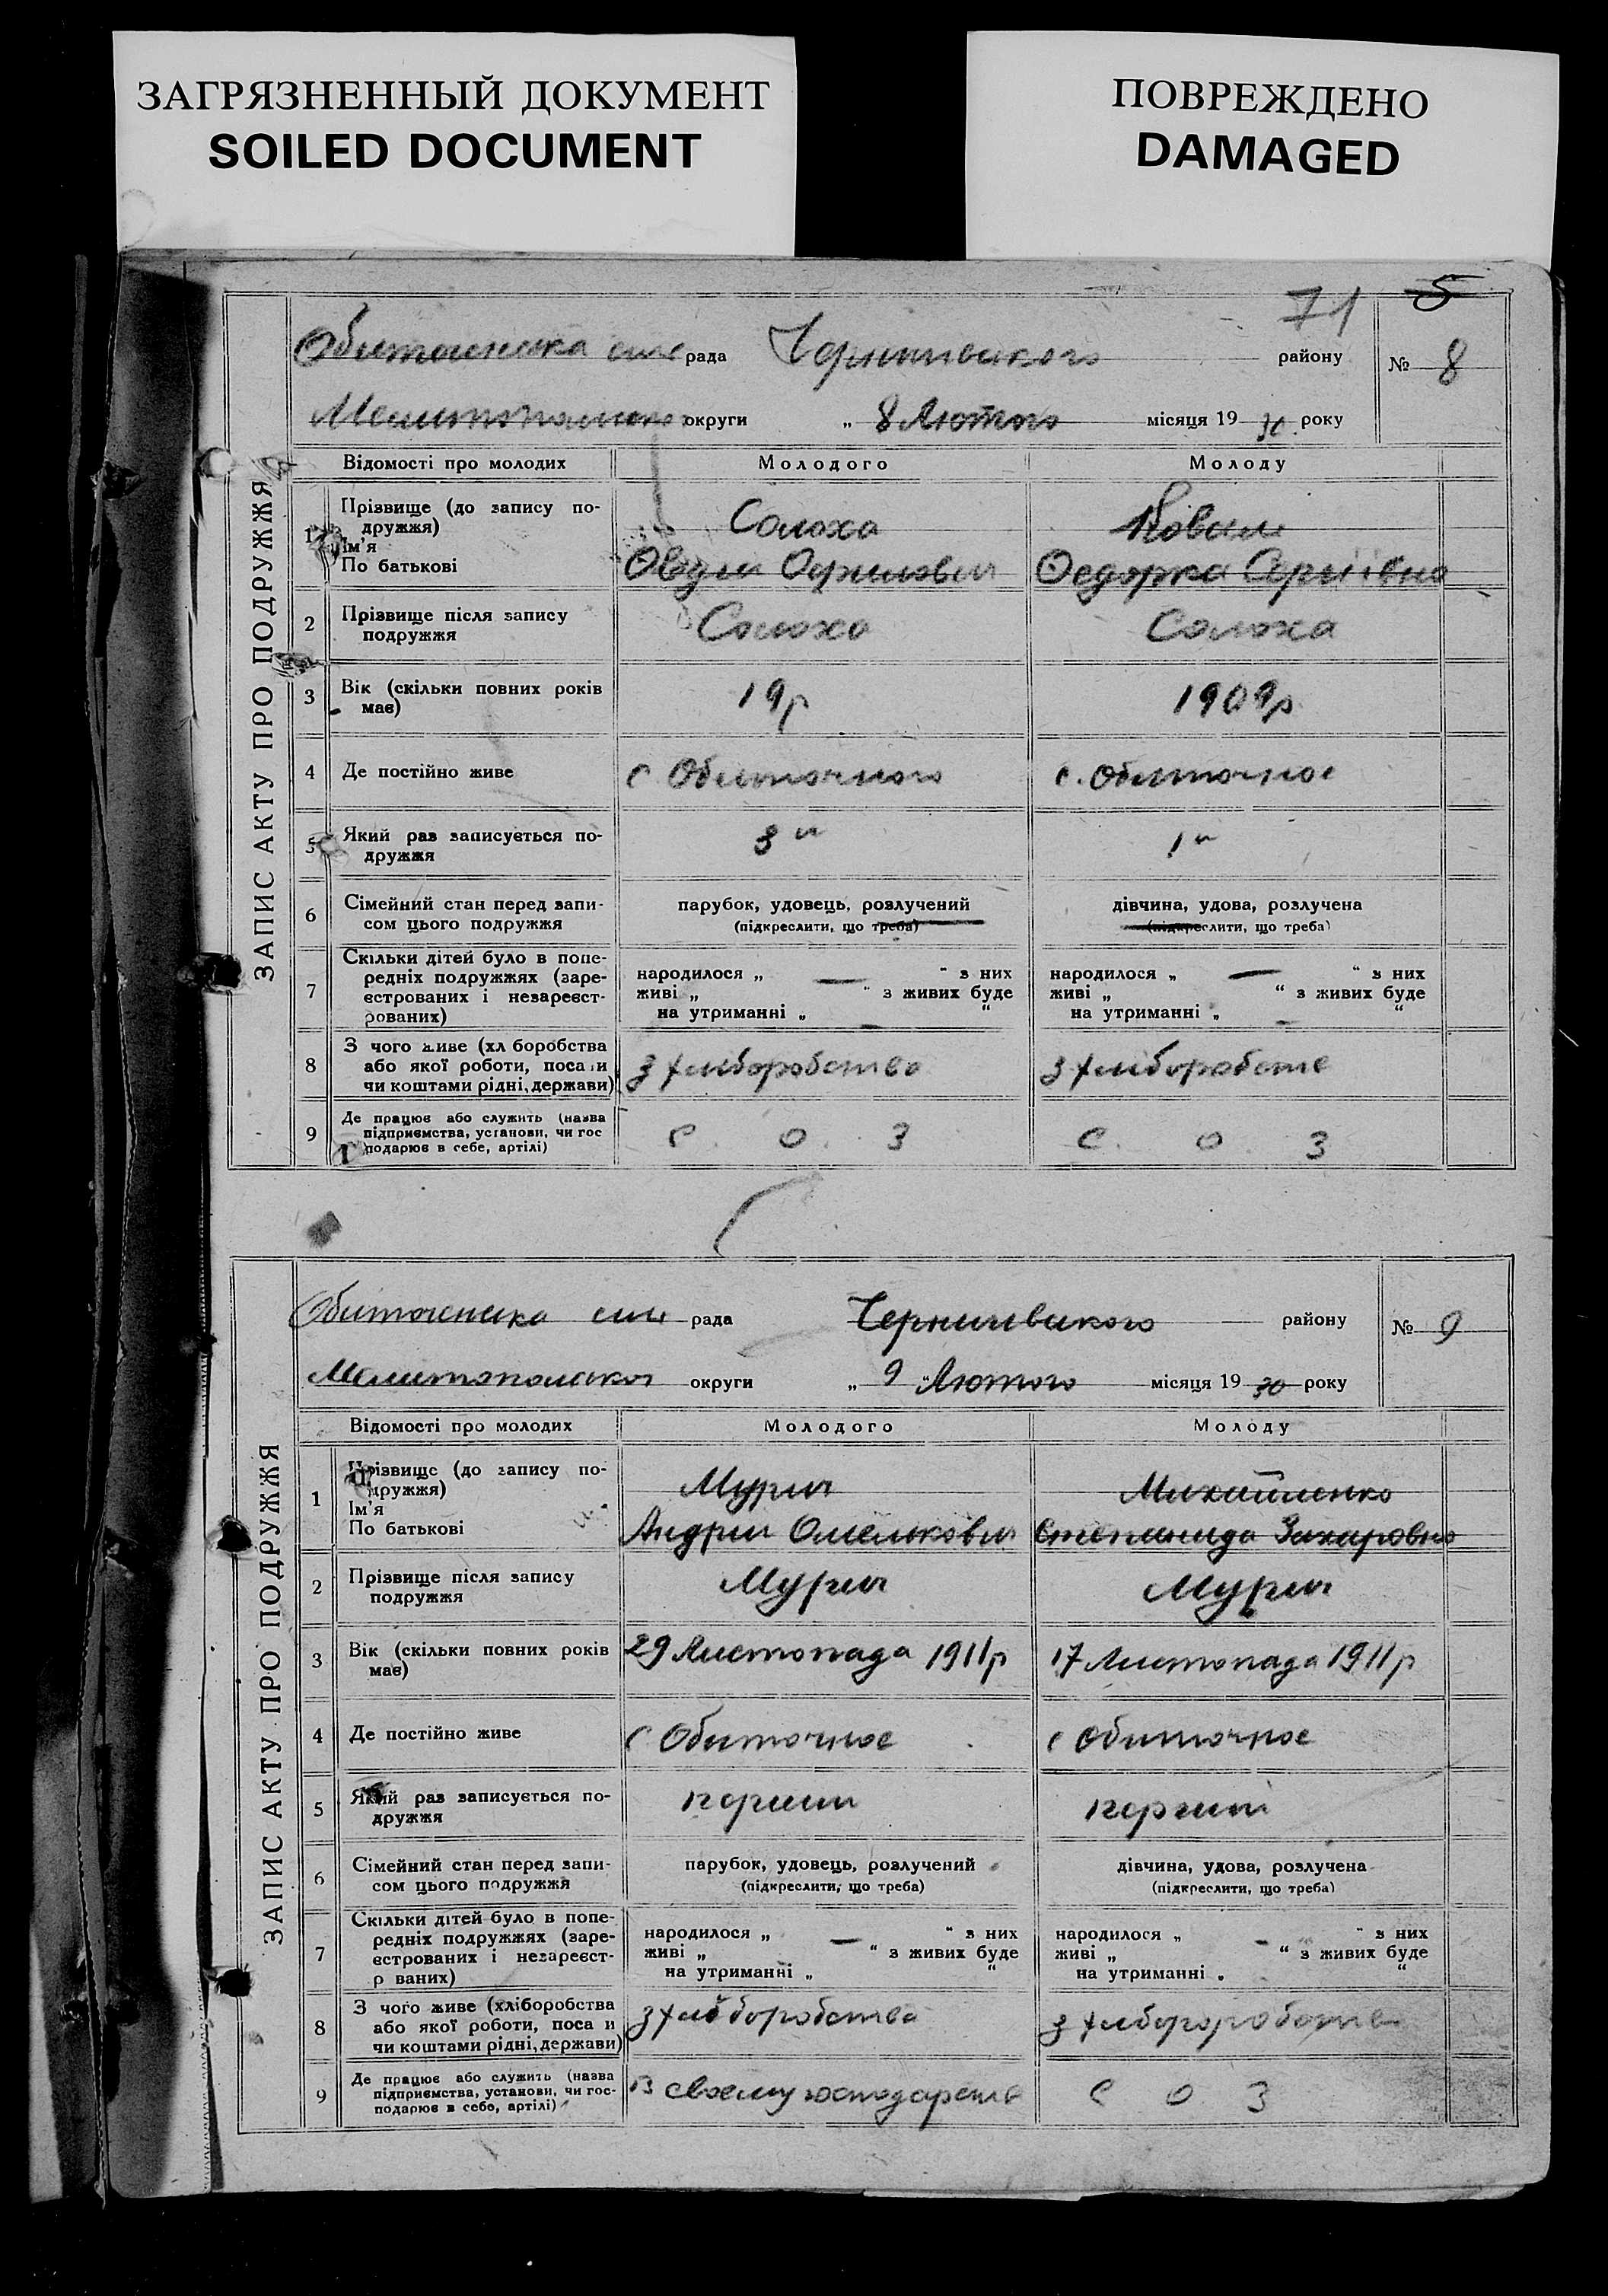 ЗАГРЯЗНЕННЫЙ ДОКУМЕНТ
SOILED DOCUMENT
ПОВРЕЖДЕНО
DAMAGED
71 5
ЗАПИС АКТУ ПРО ПОДРУЖЖЯ
рада району № 8
округи „ 8 Лютого місяця 19 30 року
Відомості про молодих Молодого Молоду
1 Прізвище (до запису по-
дружжя)
Ім'я
По батькові
Солоха Коваль
Федорка Сергіївна
2 Прізвище після запису
подружжя
Солоха Солоха
3 Вік (скільки повних років
має)
19р 1909р
4 Де постійно живе с Обиточного с. Обиточное
5 Який раз записується по-
дружжя
3й 1й
6 Сімейний стан перед запи-
сом цього подружжя
парубок, удовець, розлучений
(підкреслити, що треба)
дівчина, удова, розлучена
(підкреслити, що треба)
7 Скільки дітей було в попе-
редніх подружжях (заре-
єстрованих і незареєст-
рованих)
народилося „ — “ з них
живі „ “ з живих буде
на утриманні „ “
народилося „ — “ з них
живі „ “ з живих буде
на утриманні „ “
8 З чого живе (хл боробства
або якої роботи, поса и
чи коштами рідні, держави)
з хліборобства з хліборобств
9 Де працює або служить (назва
підприємства, установи, чи гос
подарює в себе, артілі)
С. О. З С. О. З
ЗАПИС АКТУ ПРО ПОДРУЖЖЯ
рада Чернигівського району № 9
Мелитопольської округи „ 9 “ Лютого місяця 19 30 року
Відомості про молодих Молодого Молоду
1 Прізвище (до запису по-
дружжя)
Ім'я
По батькові
Мурич Михайленко
Андрій Омелькович Степанида Захаровна
2 Прізвище після запису
подружжя
Мурич Мурич
3 Вік (скільки повних років
має)
29 Листопада 1911р 17 Листопада 1911р
4 Де постійно живе с Обиточное с Обиточное
5 Який раз записується по-
дружжя
6 Сімейний стан перед запи-
сом цього подружжя
парубок, удовець, розлучений
(підкреслити, що треба)
дівчина, удова, розлучена
(підкреслити, що треба)
7 Скільки дітей було в попе-
редніх подружжях (заре-
єстрованих і незареєст-
р ваних)
народилося „ — “ з них
живі „ “ з живих буде
на утриманні „ “
народилося „ - “ з них
живі „ “ з живих буде
на утриманні „ “
8 З чого живе (хліборобства
або якої роботи, поса и
чи коштами рідні, держави)
з хліборобства
9 Де працює або служить (назва
підприємства, установи, чи гос-
подарює в себе, артілі)
В своему господарств С О З